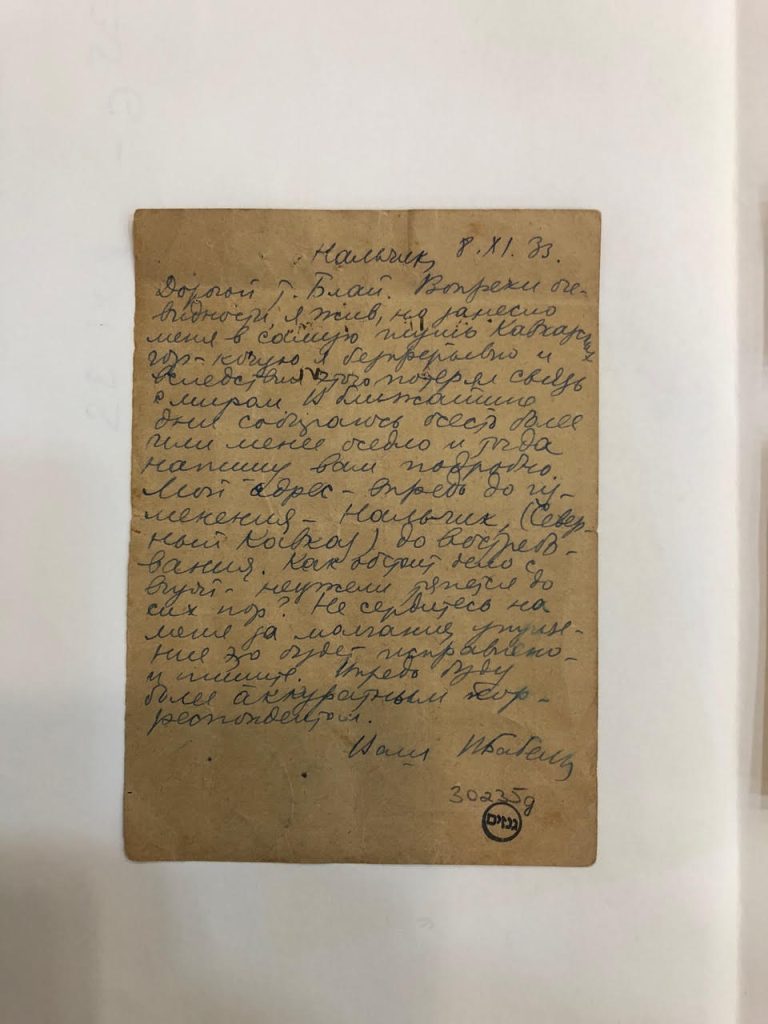 Нальчик, 8. XI. 33.
Дорогой т. Блай. Вопреки оче-
видности, я жив, но занесло
меня в самую глушь Кавказских
гор - кочую я беспрерывно и
вследствие этого потерял связь
с миром. В ближайшие
дни собираюсь осесть более
или менее оседло и тогда
напишу вам подробно.
Мой адрес - впредь до из-
менения - Нальчик, (Север-
ный Кавказ) до востребо-
вания. Как обстоит дело с
- неужели тянется до
сих пор? Не сердитесь на
меня за молчание, упуще-
ние это будет исправлено -
и пишите. Впредь буду
более аккуратным кор-
респондентом.
Ваш И Бабель
30235д
גנזים